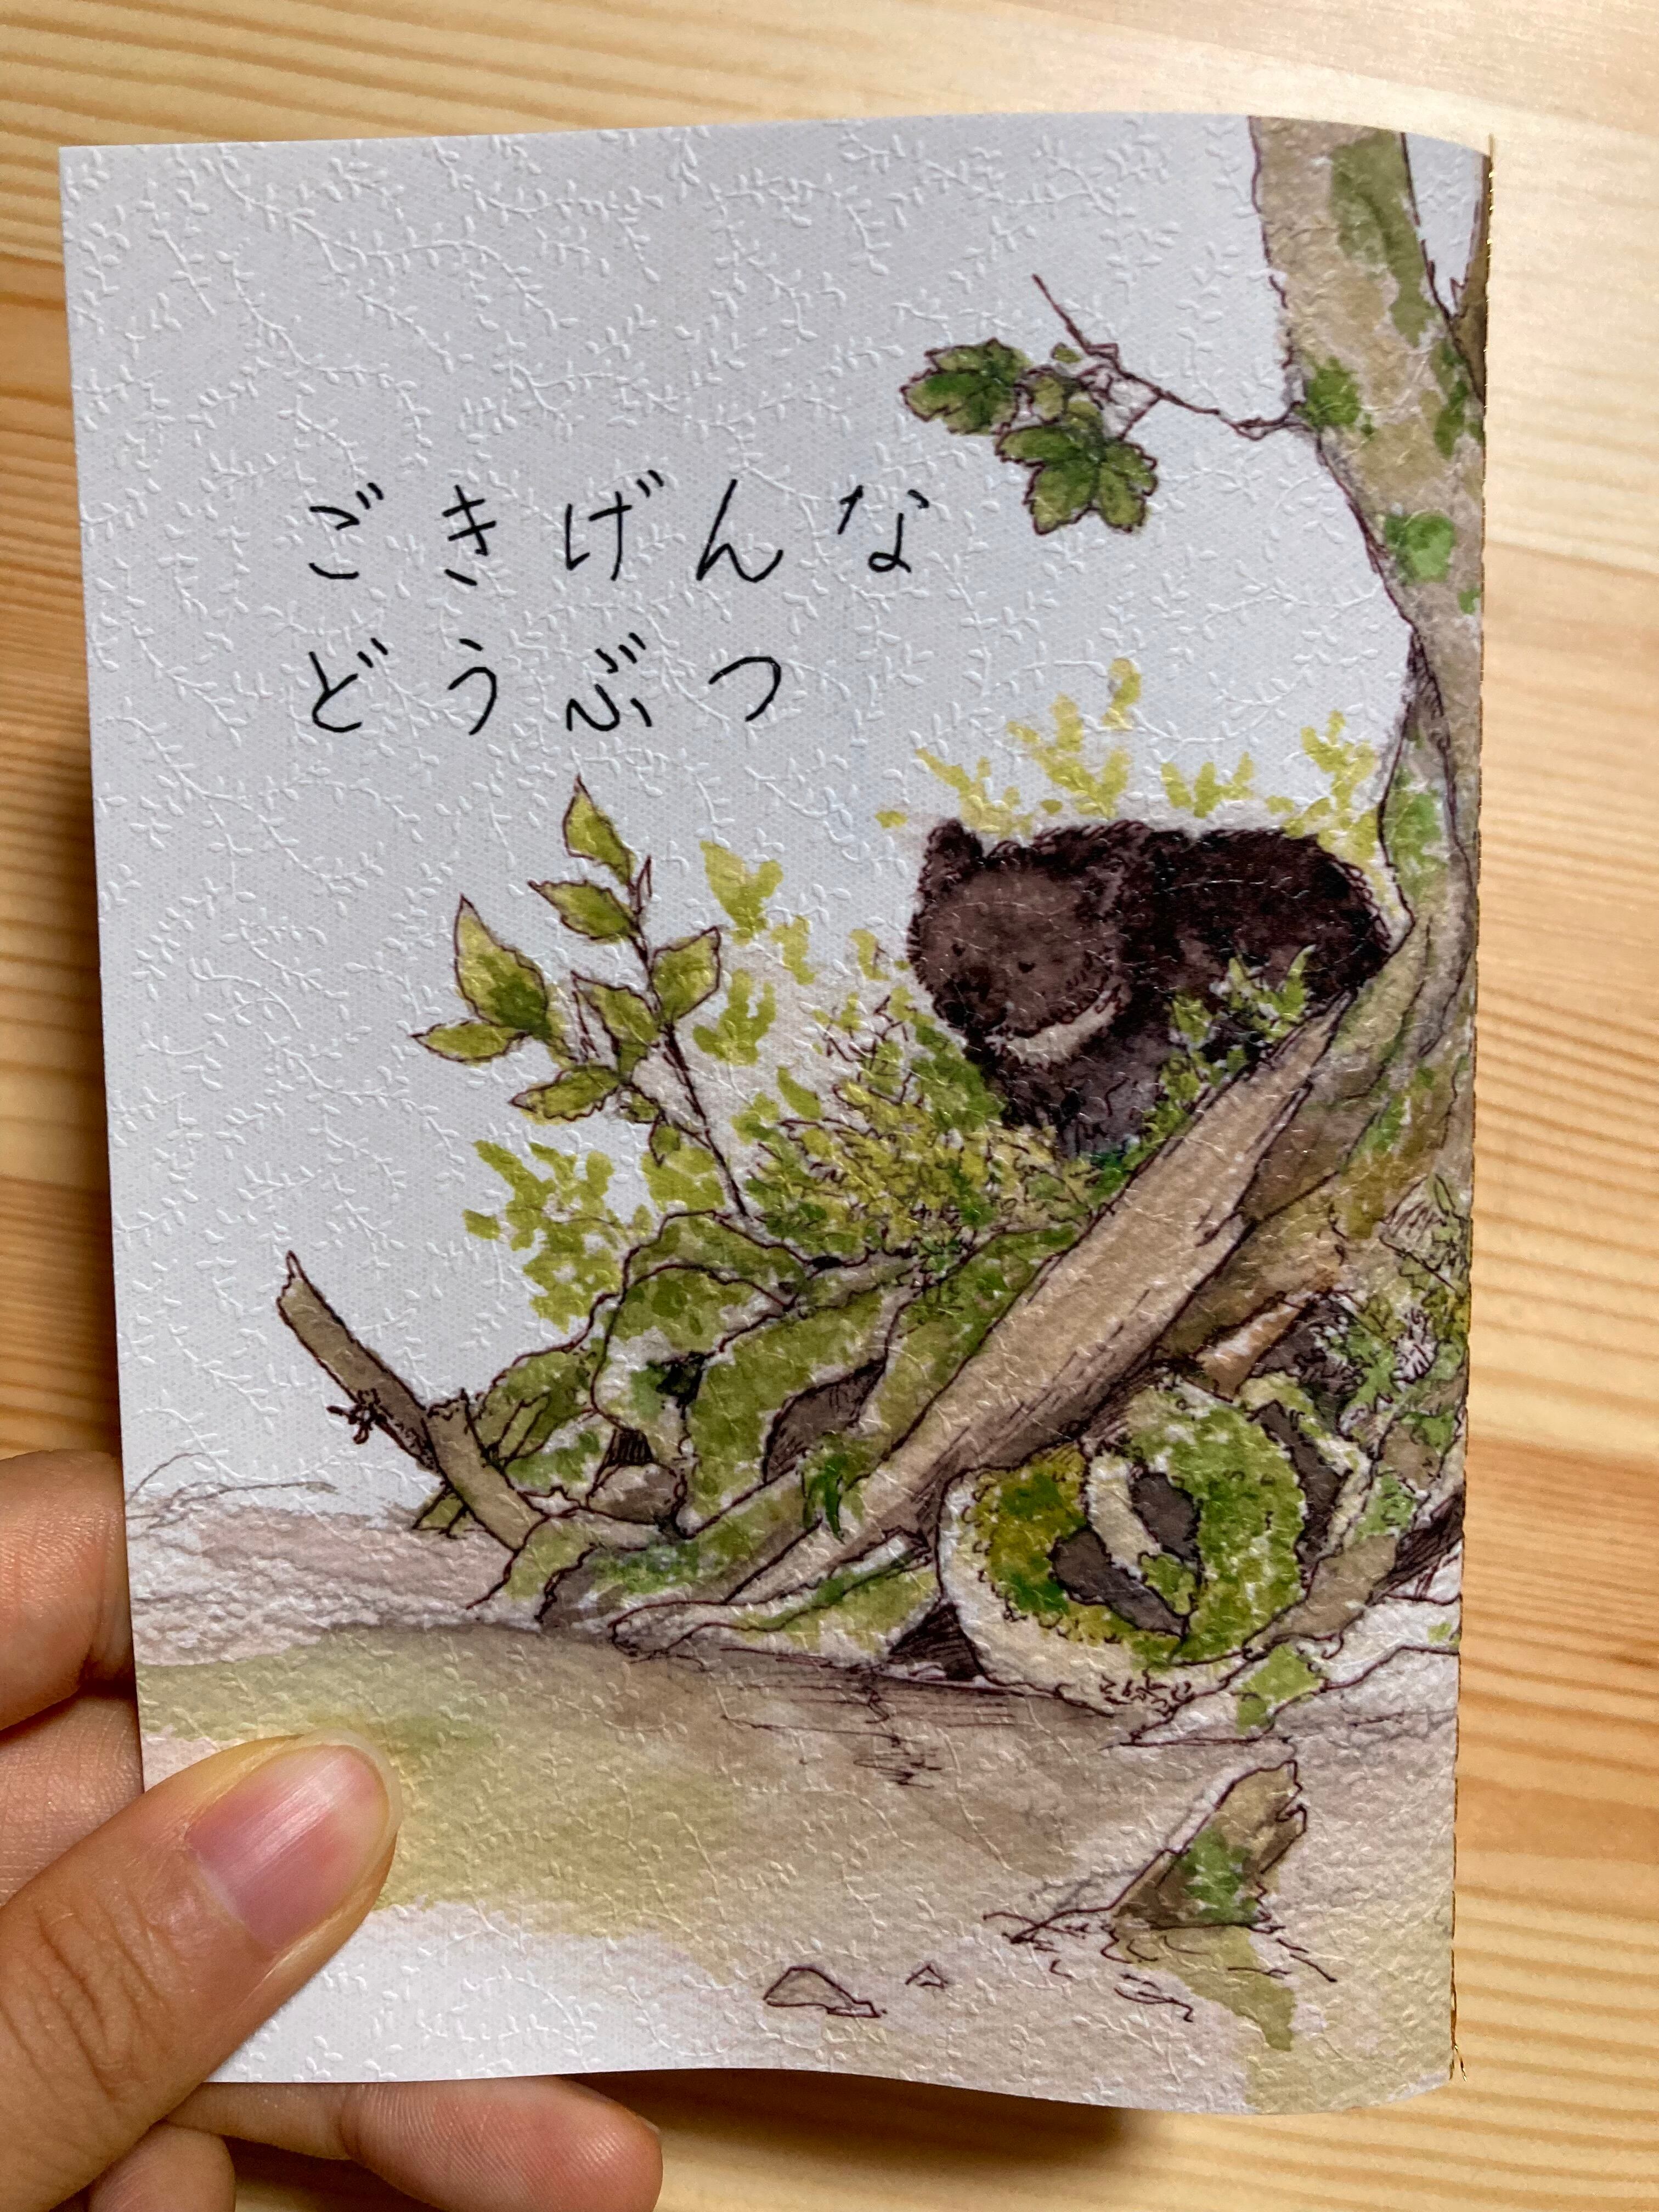 ごきげんな
どうぶつ